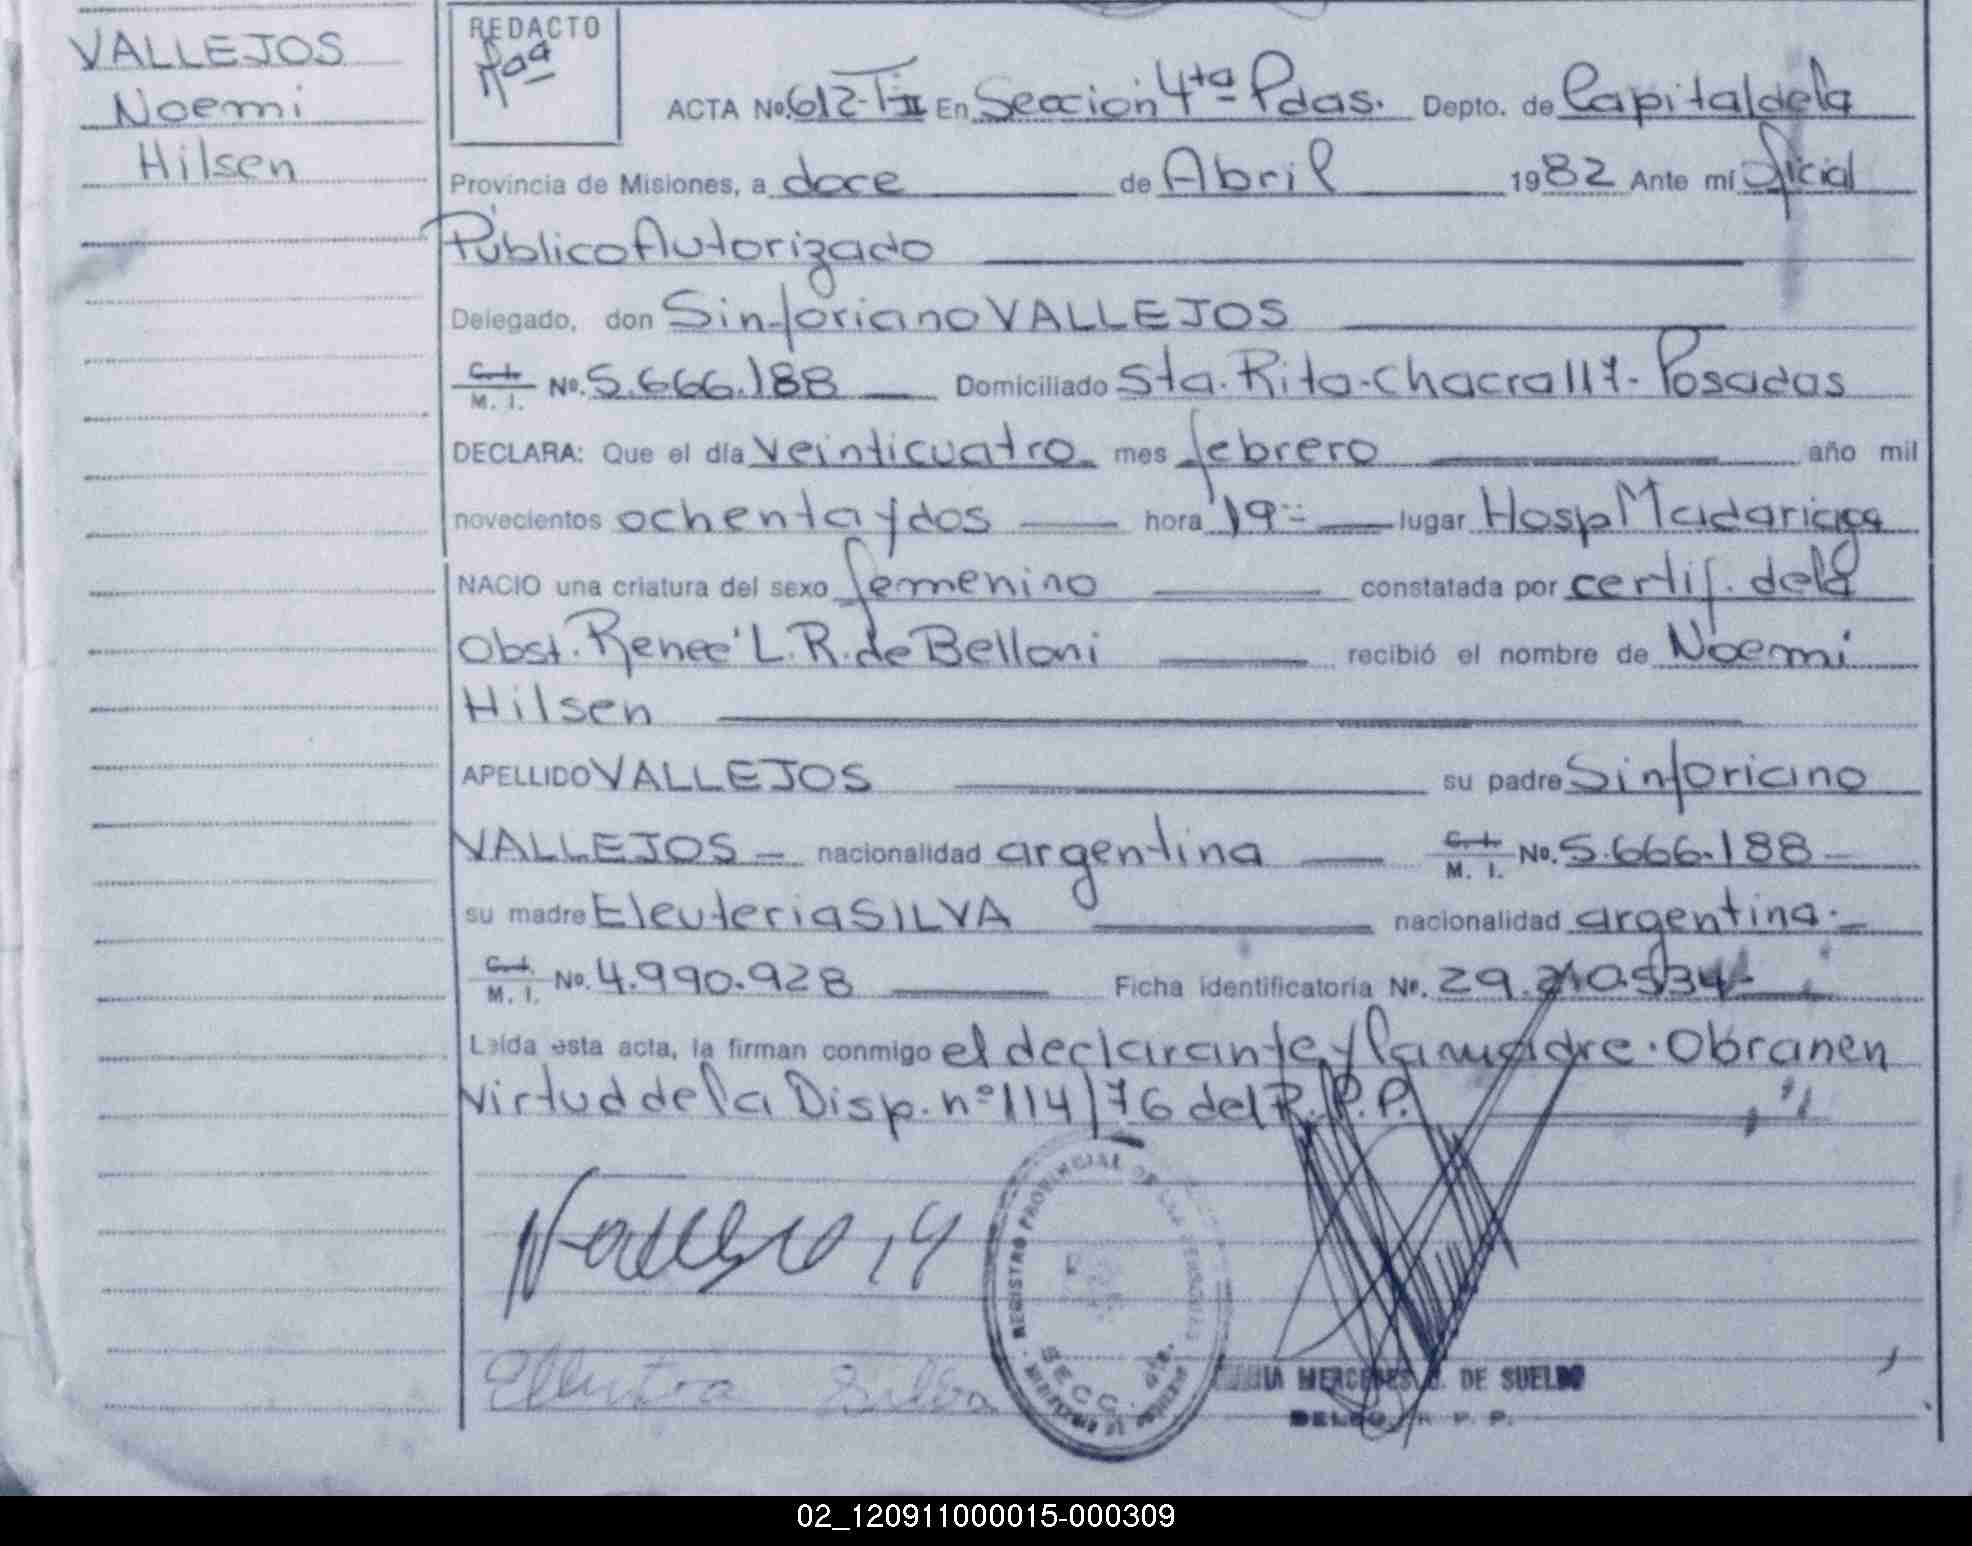 VALLEJOS
Noemi
Hilsen
REDACTO
ACTA No. 612-T-II En Sección 4ta Pdas. Depto. de Capital de la
Provincia de Misiones, a doce de Abril 1982 Ante mí Oficial
Público Autorizado
Delegado, don Sinforiano VALLEJOS
C.I. M.I. No. 5.666.188 Domiciliado Sta. Rita-Chacra 117- Posadas
DECLARA: Que el día veinticuatro mes febrero año mil
novecientos ochenta y dos hora 19 lugar Hosp Madariaga
NACIO una criatura del sexo femenino constatada por certif. de la
Obst. Reneé L. R. de Belloni recibió el nombre de Noemi
Hilsen
APELLIDO VALLEJOS su padre Sinforiano
VALLEJOS nacionalidad argentina C.I. M.I. No. 5.666.188
su madre Eleuteria SILVA nacionalidad argentina
C.I. M.I. No. 4.990.928 Ficha identificatoria No. 29.210.534
Leída esta acta, la firman conmigo el declarante y la madre. Obran en
virtud de la Disp. nº 114/76 del R.P.P.
REGISTRO PROVINCIAL DE LAS PERSONAS
SECC. 4ta.
MERCEDES DE SUELDO
DELEG. R. P. P.
02_120911000015-000309